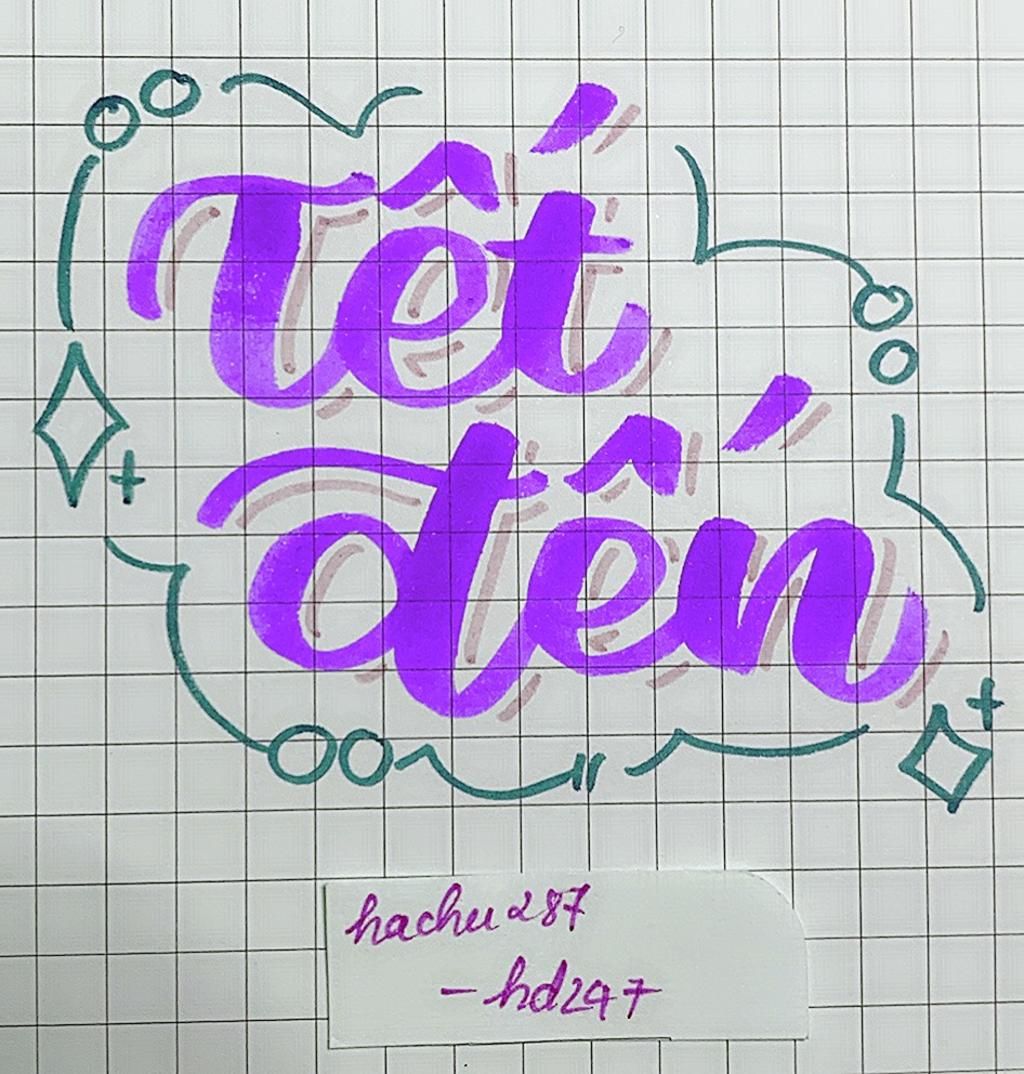 Tết
đến
hachu287
-hd247